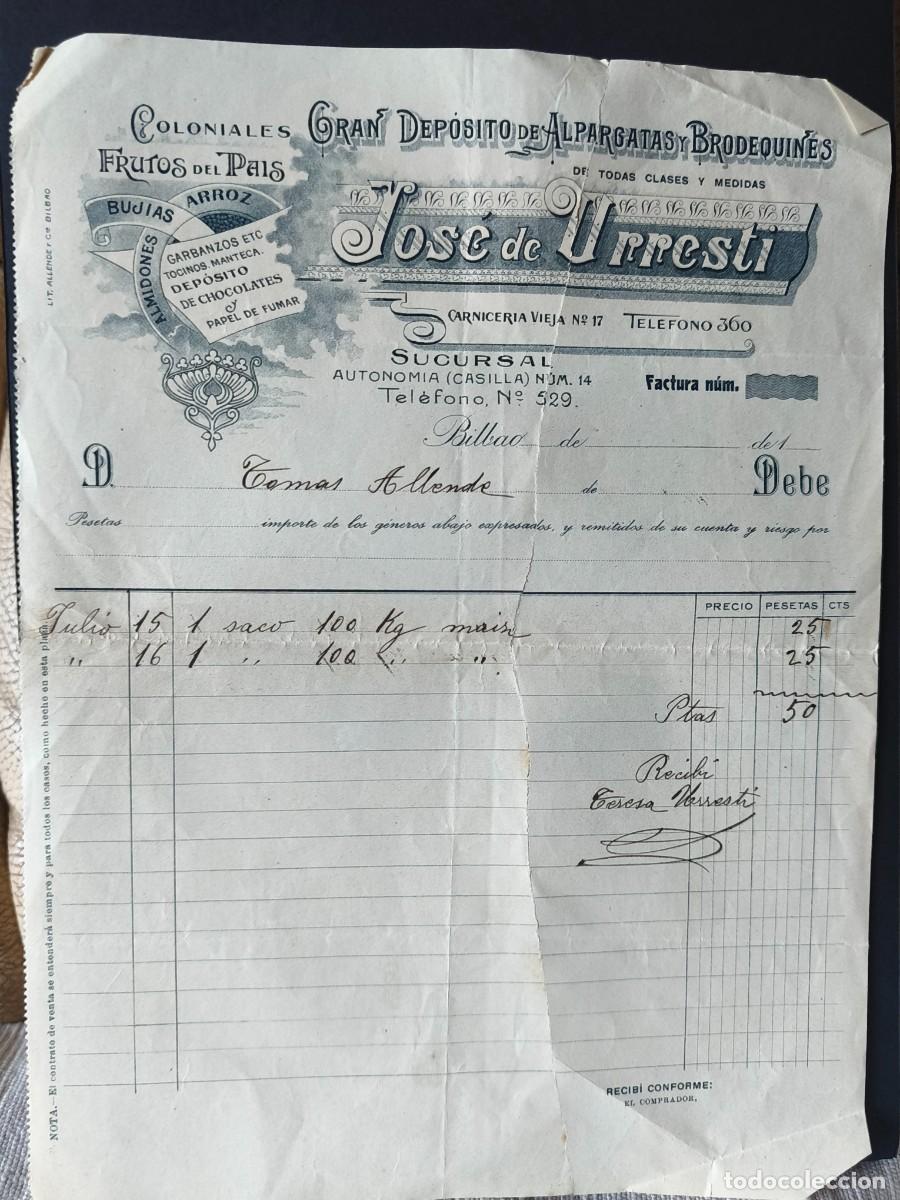 COLONIALES
FRUTOS DEL PAIS
GRAN DEPÓSITO DE ALPARGATAS Y BRODEQUINES
DE TODAS CLASES Y MEDIDAS
BUJIAS
ARROZ
ALMIDONES
GARBANZOS ETC
TOCINOS, MANTECA.
DEPÓSITO
DE CHOCOLATES
y
PAPEL DE FUMAR
José de Urresti
CARNICERIA VIEJA Nº 17 TELEFONO 360
SUCURSAL
AUTONOMIA (CASILLA) NÚM. 14
Teléfono, Nº 529.
Factura núm.
LIT. ALLENDE Y Cª BILBAO
Bilbao de de 1
D. Tomas Allende de Debe
Pesetas importe de los géneros abajo expresados, y remitidos de su cuenta y riesgo por
PRECIO PESETAS CTS
Julio 15 1 saco 100 Kg mais 25
" 16 1 " 100 " " 25
Ptas 50
Recibi
Teresa Urresti
NOTA.—El contrato de venta se entenderá siempre y para todos los casos, como hecho en esta plaza.
RECIBÍ CONFORME:
EL COMPRADOR,
todocoleccion